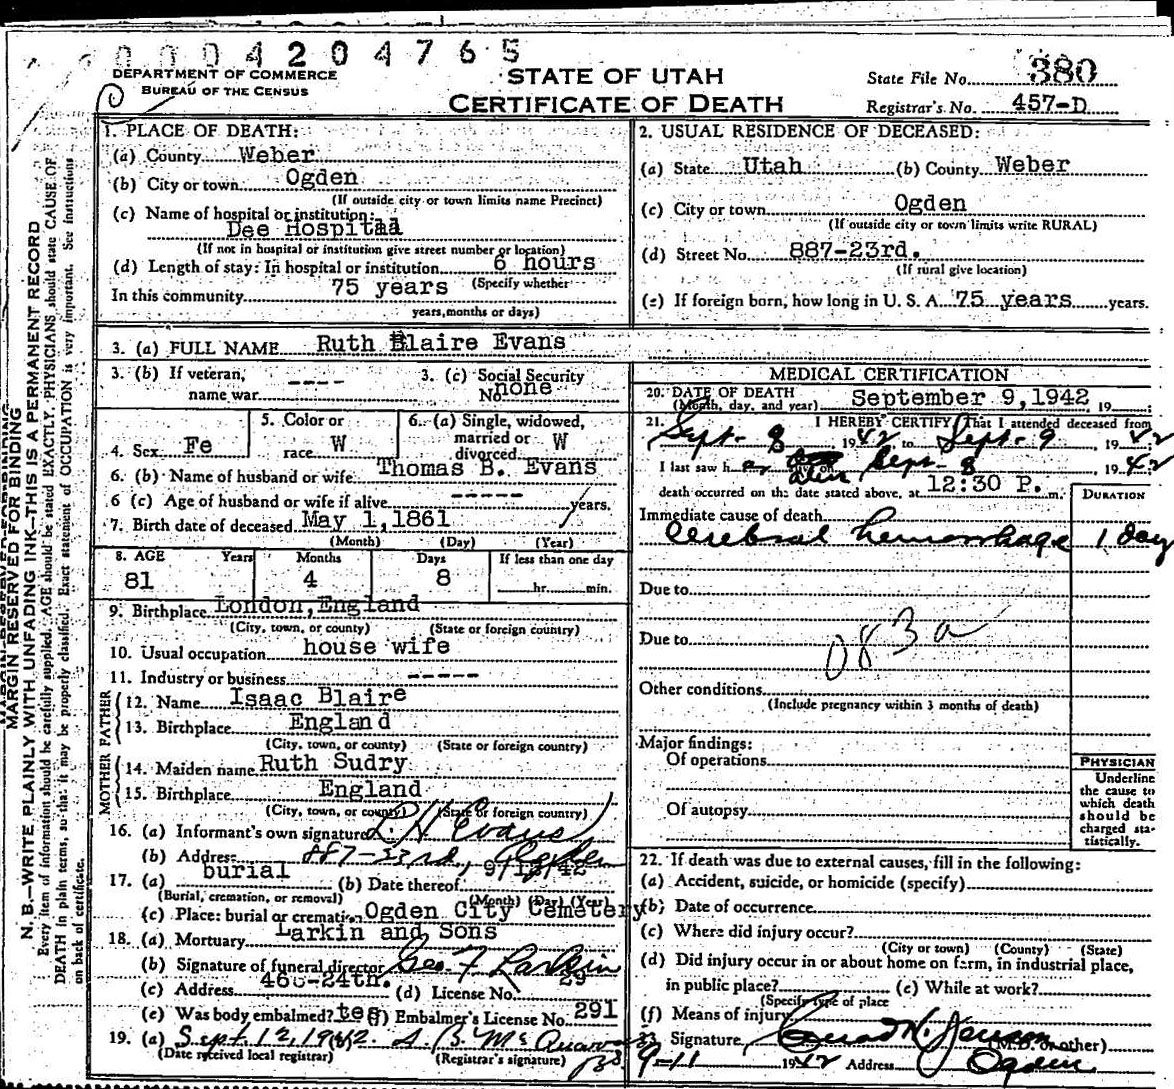 0004204765
DEPARTMENT OF COMMERCE
BUREAU OF THE CENSUS
STATE OF UTAH
CERTIFICATE OF DEATH
State File No. 380
Registrar's No. 457-D
1. PLACE OF DEATH:
(a) County Weber
(b) City or town Ogden
(If outside city or town limits name Precinct)
(c) Name of hospital or institution:
Dee Hospital
(If not in hospital or institution give street number or location)
(d) Length of stay: In hospital or institution 6 hours
(Specify whether
In this community 75 years
years, months or days)
2. USUAL RESIDENCE OF DECEASED:
(a) State Utah (b) County Weber
(c) City or town Ogden
(If outside city or town limits write RURAL)
(d) Street No. 887-23rd.
(If rural give location)
(e) If foreign born, how long in U. S. A. 75 years years.
3. (a) FULL NAME Ruth Blaire Evans
3. (b) If veteran,
name war ----
3. (c) Social Security
No. none
4. Sex Fe
5. Color or
race W
6. (a) Single, widowed,
married or
divorced W
6. (b) Name of husband or wife Thomas B. Evans
6 (c) Age of husband or wife if alive ----- years.
7. Birth date of deceased May 1,1861
(Month) (Day) (Year)
8. AGE Years Months Days If less than one day
81 4 8 hr. min.
9. Birthplace London,England
(City, town, or county) (State or foreign country)
10. Usual occupation house wife
11. Industry or business -----
FATHER
12. Name Isaac Blaire
13. Birthplace England
(City, town, or county) (State or foreign country)
MOTHER
14. Maiden name Ruth Sudry
15. Birthplace England
(City, town, or county) (State or foreign country)
16. (a) Informant's own signature L. H. Evans
(b) Address 887-23rd, Ogden
17. (a) burial (b) Date thereof 9/12/42
(Burial, cremation, or removal) (Month) (Day) (Year)
(c) Place: burial or cremation Ogden City Cemetery
18. (a) Mortuary Larkin and Sons
(b) Signature of funeral director Geo F Larkin
(c) Address 460-24th. (d) License No. 29
(e) Was body embalmed? yes (f) Embalmer's License No. 291
19. (a) Sept. 12, 1942.
(Date received local registrar) (Registrar's signature)
MEDICAL CERTIFICATION
20. DATE OF DEATH
(Month, day, and year) September 9,1942 , 19 :
21. I HEREBY CERTIFY, That I attended deceased from
Sept. 8 1942 to Sept. 9 , 1942
I last saw her alive on Sept. 8 , 1942
death occurred on the date stated above, at 12:30 P. m.
DURATION
Immediate cause of death
Cerebral hemorrhage 1 day
Due to
083a
Due to
Other conditions
(Include pregnancy within 3 months of death)
Major findings:
Of operations
Of autopsy
PHYSICIAN
Underline
the cause to
which death
should be
charged sta-
tistically.
22. If death was due to external causes, fill in the following:
(a) Accident, suicide, or homicide (specify)
(b) Date of occurrence
(c) Where did injury occur?
(City or town) (County) (State)
(d) Did injury occur in or about home on farm, in industrial place,
in public place? (e) While at work?
(Specify type of place
(f) Means of injury
23. Signature
(M.D. or other)
9-11 1942 Address Ogden
MARGIN RESERVED FOR BINDING
N. B.—WRITE PLAINLY WITH UNFADING INK—THIS IS A PERMANENT RECORD
Every item of information should be carefully supplied. AGE should be stated EXACTLY. PHYSICIANS should state CAUSE OF
DEATH in plain terms, so that it may be properly classified. Exact statement of OCCUPATION is very important. See instructions
on back of certificate.